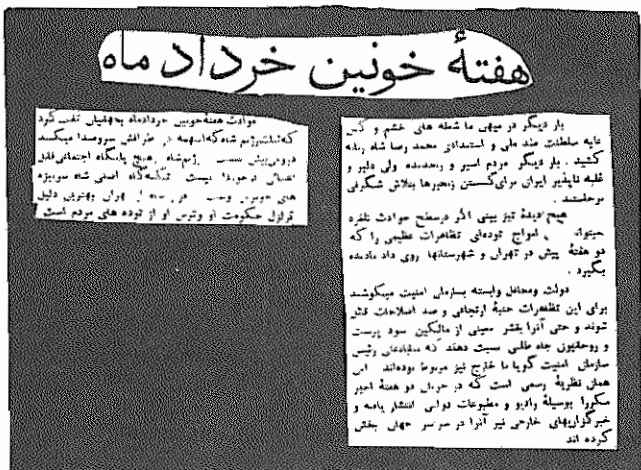 هفتهٔ خونین خرداد ماه
بار دیگر در میهن ما شعله های خشم و کین
علیه سلطنت ضد ملی و استبدادی محمد رضا شاه زبانه
کشید . بار دیگر مردم اسیر و رنجدیده ولی دلیر و
غلبه ناپذیر ایران برای گسستن زنجیرها بتلاش شگرفی
برخاستند .
هیچ دیدهٔ تیز بینی اگر درسطح حوادث نلغزد
امواج توده‌ای تظاهرات عظیمی را که
دو هفتهٔ پیش در تهران و شهرستانها روی داد نادیده
بگیرد .
دولت ومحافل وابسته بسازمان امنیت میکوشند
برای این تظاهرات جنبهٔ ارتجاعی و ضد اصلاحات قائل
شوند و حتی آنرا بقشر معینی از مالکین سود پرست
و روحانیون جاه طلبی نسبت دهند که رئیس
سازمان امنیت گویا با خارج نیز مربوط بوده‌اند این
همان نظریهٔ رسمی است که در جریان دو هفتهٔ اخیر
مکررا بوسیلهٔ رادیو و مطبوعات دولتی انتشار یافته و
خبرگزاریهای خارجی نیز آنرا در سراسر جهان پخش
کرده اند
حوادث هفته خونین خردادماه بجهانیان ثابت کرد
که رژیم شاه که اینهمه در اطرافش سروصدا میکنند
پیش نیست رژیم شاه هیچ پایگاه اجتماعی قابل
نیست تکیه گاه اصلی شاه سرنیزه
های تهران بهترین دلیل
تزلزل حکومت او وترس او از توده های مردم است